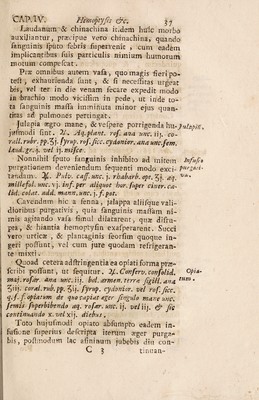 CAP. IV. Hæmoptysis &c. 37
Laudanum & chinachina itidem huic morbo
auxiliantur, præcipue vero chinachina, quando
sanguinis sputo febris supervenit, cum eadem
implicantibus suis particulis nimium humorum
motum compescat.
Præ omnibus autem vasa, quo magis fieri po-
test, exhaurienda sunt, & si necessitas urgeat
bis, vel ter in die venam secare expedit modo
in brachio modo vicissim in pede, ut inde to-
ta sanguinis massa imminuta minor ejus quan-
titas ad pulmones pertingat.
Julapia ægro mane, & vespere porrigenda hu-
jusmodi sint. ℞. Aq. plant. ros. ana unc. iij. co-
rall. rubr. pp. ʒj. syrup. ros. sicc. cydoniar. ana unc. sem.
Laud. gr. j. vel ij. misce.
Julapia.
Nonnihil sputo sanguinis inhibito ad initem
purgationem deveniendum sequenti modo exci-
tandam. ℞. Pulp. cass. unc. j. rhabarb. opt. ʒj. aq.
millefol. unc. vj. inf. per aliquot hor. super ciner. ca-
lid. colat. add. mann. unc. j. f. pot.
Infusio
purgati-
va.
Cavendum hic a senna, jalappa aliisque vali-
dioribus purgativis, quia sanguinis massam ni-
mis agitando vasa simul dilatarent, quæ distu-
pta, & hiantia hemoptysin exasperarent. Succi
vero urticæ, & plantaginis seorsim quoque in-
geri possunt, vel cum jure quodam refrigeran-
te mixti.
Quod cetera adstringentia ea opiati forma præ-
scribi possunt, ut sequitur. ℞. Conserv. consolid.
maj. rosar. ana unc. iij. bol. armen. terræ sigill. ana
ʒiij. coral. rub. pp. ʒij. syrup. cydoniar. vel ros. sicc.
q. s. f. opiatum de quo capiat æger singulo mane unc.
semis superbibendo aq. rosar. unc. ij. vel iij. & sic
continuando x. vel xij. diebus.
Opia-
tum.
Toto hujusmodi opiato absumpto eadem in-
fusione superius descripta iterum æger purga-
bis, postmodum lac asininum jubebis diu con-
C 3 tinuan-